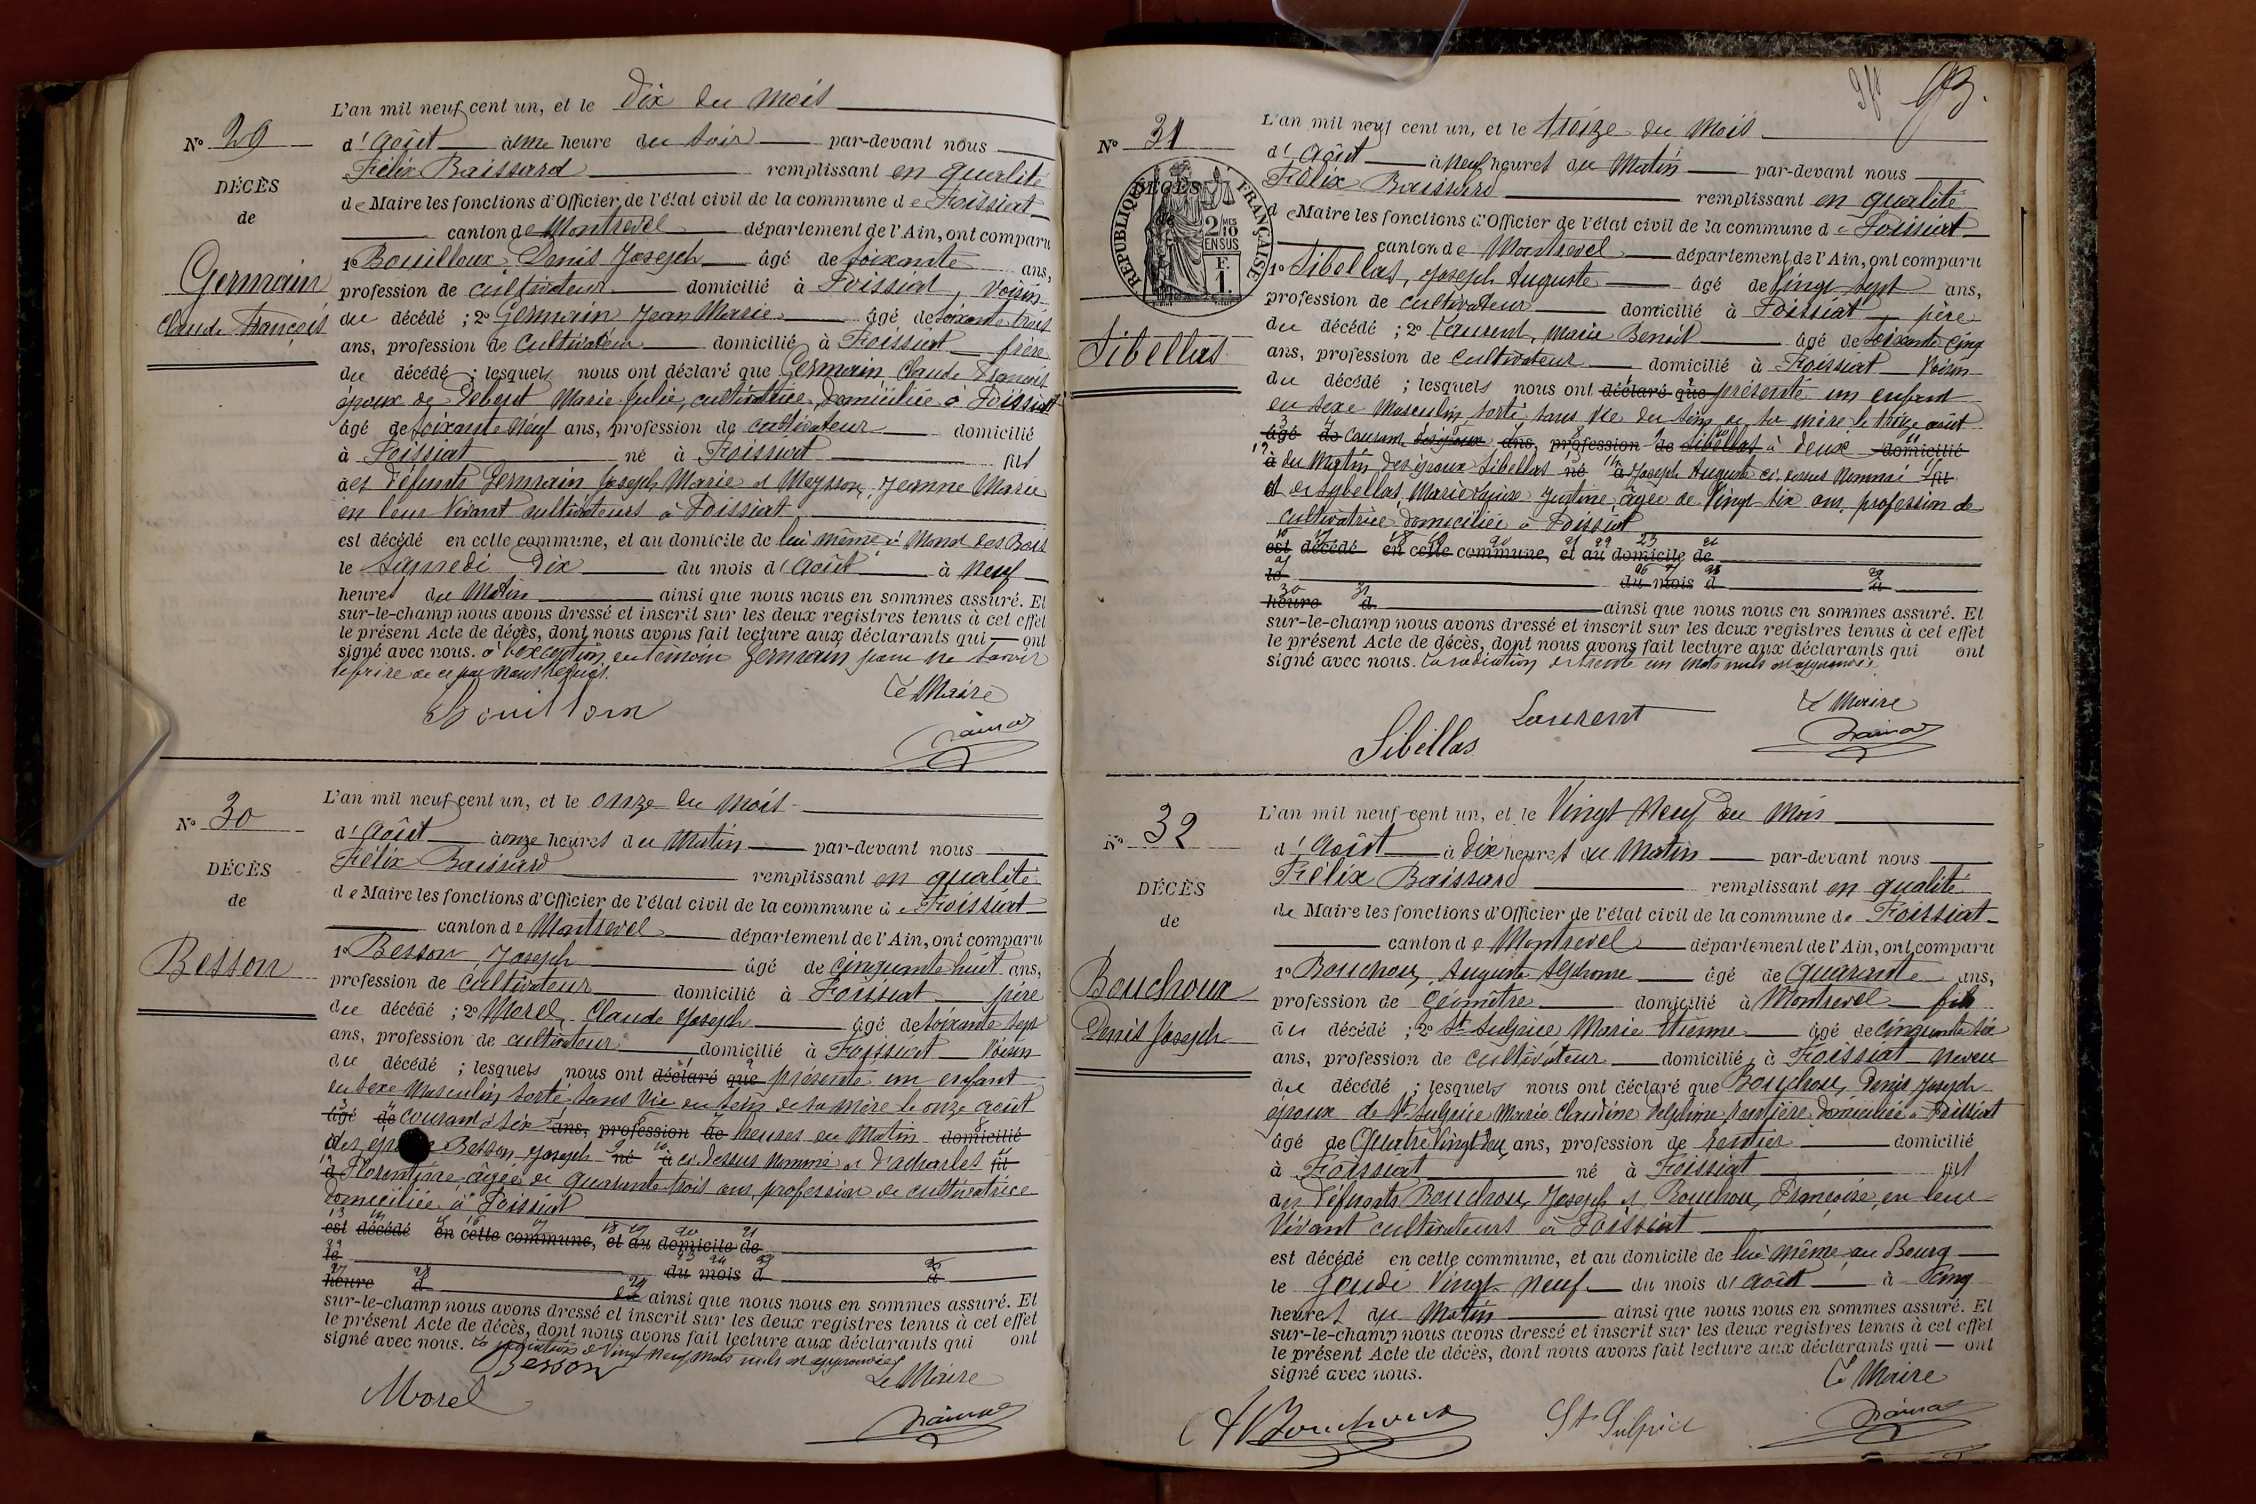 L'an mil neuf cent un, et le dix du mois
No 29
d'août à une heure du soir par-devant nous
Félix Baissard remplissant en qualité
DÉCÈS
de Maire les fonctions d'Officier de l'état civil de la commune de Foissiat
de
canton de Montrevel département de l'Ain, ont comparu
1o Bouilloux, Denis Joseph âgé de soixante ans,
Germain
profession de cultivateur domicilié à Foissiat, voisin
Claude François
du décédé ; 2o Germain Jean Marie âgé de soixante trois
ans, profession de cultivateur domicilié à Foissiat frère
du décédé ; lesquels nous ont déclaré que Germain Claude François
époux de Debost Marie Julie, cultivatrice, domiciliée à Foissiat
âgé de soixante neuf ans, profession de cultivateur domicilié
à Foissiat né à Foissiat fils
des défunts Germain Joseph Marie et Meysson, Jeanne Marie
en leur vivant cultivateurs à Foissiat
est décédé en cette commune, et au domicile de lui même à
le samedi dix du mois d'août à neuf
heures du matin ainsi que nous nous en sommes assuré. Et
sur-le-champ nous avons dressé et inscrit sur les deux registres tenus à cet effet
le présent Acte de décès, dont nous avons fait lecture aux déclarants qui ont
signé avec nous. à l'exception du témoin Germain pour ne savoir
le faire de ce par nous requis.
Le Maire
Bouilloux
No 30
L'an mil neuf cent un, et le onze du mois
d'août à onze heures du matin par-devant nous
Félix Baissard remplissant en qualité
DÉCÈS
de Maire les fonctions d'Officier de l'état civil de la commune de Foissiat
de
canton de Montrevel département de l'Ain, ont comparu
Besson
1o Besson, Joseph âgé de cinquante huit ans,
profession de cultivateur domicilié à Foissiat père
du décédé ; 2o Morel, Claude Joseph âgé de soixante sept
ans, profession de cultivateur domicilié à Foissiat voisin
du décédé ; lesquels nous ont déclaré que présenté un enfant
du sexe masculin sorti sans vie du sein de sa mère le onze août
âgé de courant à six ans, profession de heures du matin domicilié
des époux Besson Joseph né à ci dessus nommé et d'acharles fil
à Florentine, âgée de quarante trois ans, profession de cultivatrice
domiciliée à Foissiat
est décédé en cette commune, et au domicile de
le du mois d à
heure d ainsi que nous nous en sommes assuré. Et
sur-le-champ nous avons dressé et inscrit sur les deux registres tenus à cet effet
le présent Acte de décès, dont nous avons fait lecture aux déclarants qui ont
signé avec nous. La radiation de vingt neuf mots nuls est approuvée
Besson
Le Maire
Morel
93.
No 31
L'an mil neuf cent un, et le treize du mois
d'août à neuf heures du matin par-devant nous
Félix Baissard remplissant en qualité
DÉCÈS
RÉPUBLIQUE FRANÇAISE
2/10 MES EN SUS
F. 1.
de Maire les fonctions d'Officier de l'état civil de la commune de Foissiat
canton de Montrevel département de l'Ain, ont comparu
1o Sibellas, Joseph Auguste âgé de vingt sept ans,
profession de cultivateur domicilié à Foissiat père
Sibellas
du décédé ; 2o Laurent, Marie Benoit âgé de soixante cinq
ans, profession de cultivateur domicilié à Foissiat voisin
du décédé ; lesquels nous ont déclaré que présenté un enfant
du sexe masculin sorti sans vie du sein de sa mère le treize août
âgé de courant des époux ans, profession de Sibellas à deux domicilié
à du matin des époux Sibellas né à Joseph Auguste ci dessus nommé fil
d et de Sybellas, Marie Louise Justine, âgée de vingt six ans, profession de
cultivatrice domiciliée à Foissiat
est décédé en cette commune, et au domicile de
le du mois d à
heure d ainsi que nous nous en sommes assuré. Et
sur-le-champ nous avons dressé et inscrit sur les deux registres tenus à cet effet
le présent Acte de décès, dont nous avons fait lecture aux déclarants qui ont
signé avec nous. La radiation de trente un mots nuls est approuvée
Le Maire
Laurent
Sibellas
No 32
L'an mil neuf cent un, et le vingt neuf du mois
d'août à dix heures du matin par-devant nous
Félix Baissard remplissant en qualité
DÉCÈS
de Maire les fonctions d'Officier de l'état civil de la commune de Foissiat
de
canton de Montrevel département de l'Ain, ont comparu
Bouchoux
1o Bouchoux, Auguste Alphonse âgé de quarante ans,
profession de Géomètre domicilié à Montrevel fils
Denis Joseph
du décédé ; 2o St Sulpice Marie Etienne âgé de cinquante six
ans, profession de cultivateur domicilié à Foissiat neveu
du décédé ; lesquels nous ont déclaré que Bouchoux, Denis Joseph
époux de St Sulpice Marie Claudine Delphine, rentière domiciliée à Foissiat
âgé de quatre vingt deux ans, profession de rentier domicilié
à Foissiat né à Foissiat fils
des défunts Bouchoux, Joseph et Bouchoux, Françoise, en leur
vivant cultivateurs à Foissiat
est décédé en cette commune, et au domicile de lui même au Bourg
le Jeudi vingt neuf du mois d'août à cinq
heures du matin ainsi que nous nous en sommes assuré. Et
sur-le-champ nous avons dressé et inscrit sur les deux registres tenus à cet effet
le présent Acte de décès, dont nous avons fait lecture aux déclarants qui ont
signé avec nous.
Le Maire
A Bouchoux
St Sulpice